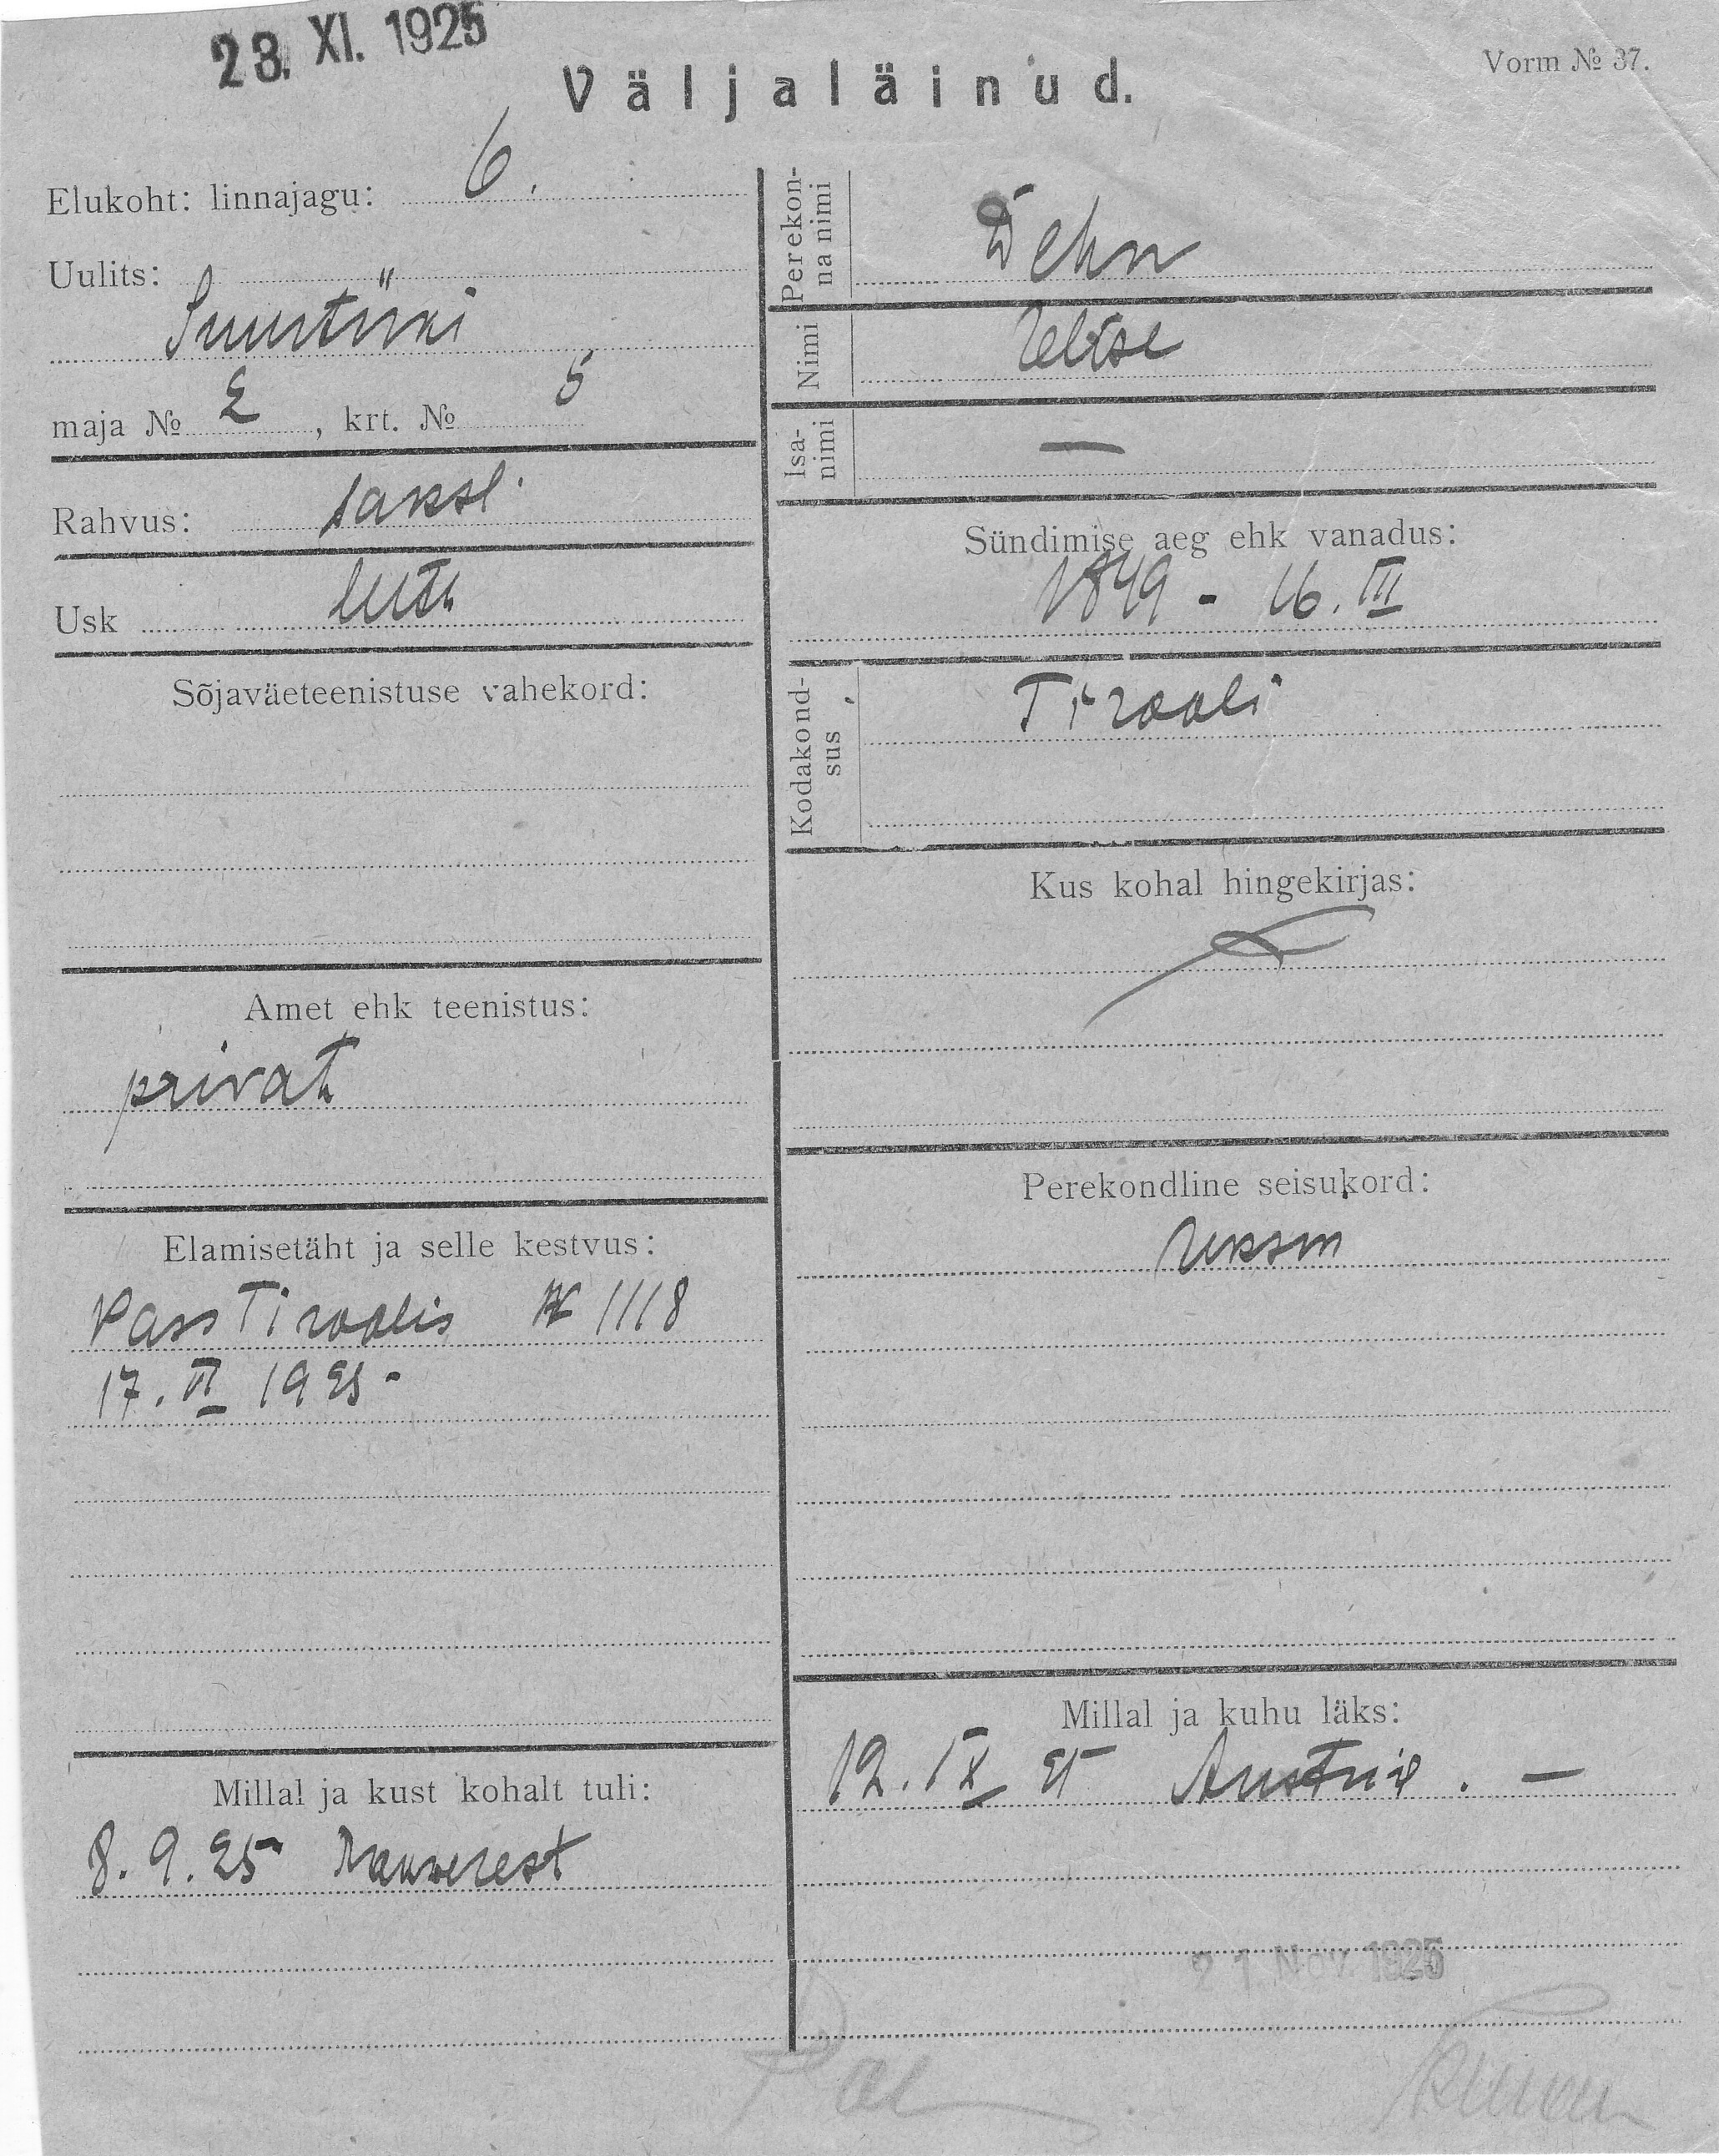 23. XI. 1925
Väljaläinud.
Vorm № 37.
Elukoht: linnajagu: 6.
Uulits:
Suurtüki
maja № 2, krt. № 5
Rahvus: saksl.
Usk luth
Sõjaväeteenistuse vahekord:
Amet ehk teenistus:
privat
Elamisetäht ja selle kestvus:
Pass Tiroolis № 1118
17. VI 1925 -
Millal ja kust kohalt tuli:
8. 9. 25 Rakverest
Perekonna nimi
Dehn
Nimi
Isanimi
—
Sündimise aeg ehk vanadus:
1849 - 16. III
Kodakondsus
Tirooli
Kus kohal hingekirjas:
Perekondline seisukord:
Millal ja kuhu läks:
12. IX 25 Austria. —
21 Nov. 1925